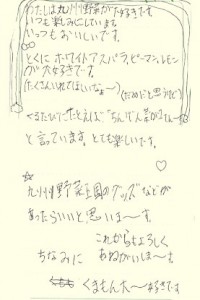 わたしは九州野菜が大好きです
いつも楽しみにしている
いつもおいしいです。
とくにホワイトアスパラ、ピーマン、レモン
が大好きです。
(たくさんいれてほしいなぁ〜)
(だめだと思うけど)
くるたびに、たとえば"ちんげん菜が
と言っています。とても楽しいです。
☆
九州野菜王国のグッズなどが
あったらいいと思いま〜す。
これからもよろしく
おねがいしま〜す
ちなみに
くまもんだ〜い好きです